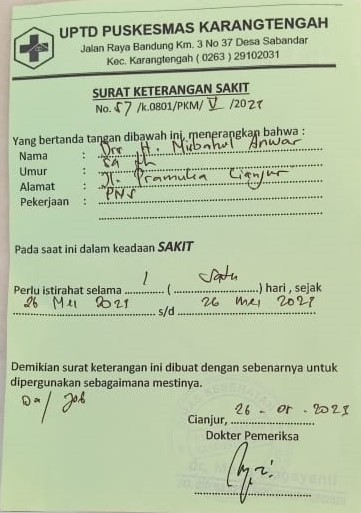 UPTD PUSKESMAS KARANGTENGAH
Jalan Raya Bandung Km. 3 No 37 Desa Sabandar
Kec. Karangtengah ( 0263 ) 29102031
SURAT KETERANGAN SAKIT
No. 57 /k.0801/PKM/ V /2021
Yang bertanda tangan dibawah ini, menerangkan bahwa :
Nama : Drs H. Misbahul Anwar
Umur : 59 th
Alamat : Jl. Pramuka Cianjur
Pekerjaan : PNS
Pada saat ini dalam keadaan SAKIT
Perlu istirahat selama 1 ( Satu ) hari , sejak
26 Mei 2021 s/d 26 Mei 2021
Demikian surat keterangan ini dibuat dengan sebenarnya untuk
dipergunakan sebagaimana mestinya.
Cianjur, 26 - 05 - 2021
Dokter Pemeriksa